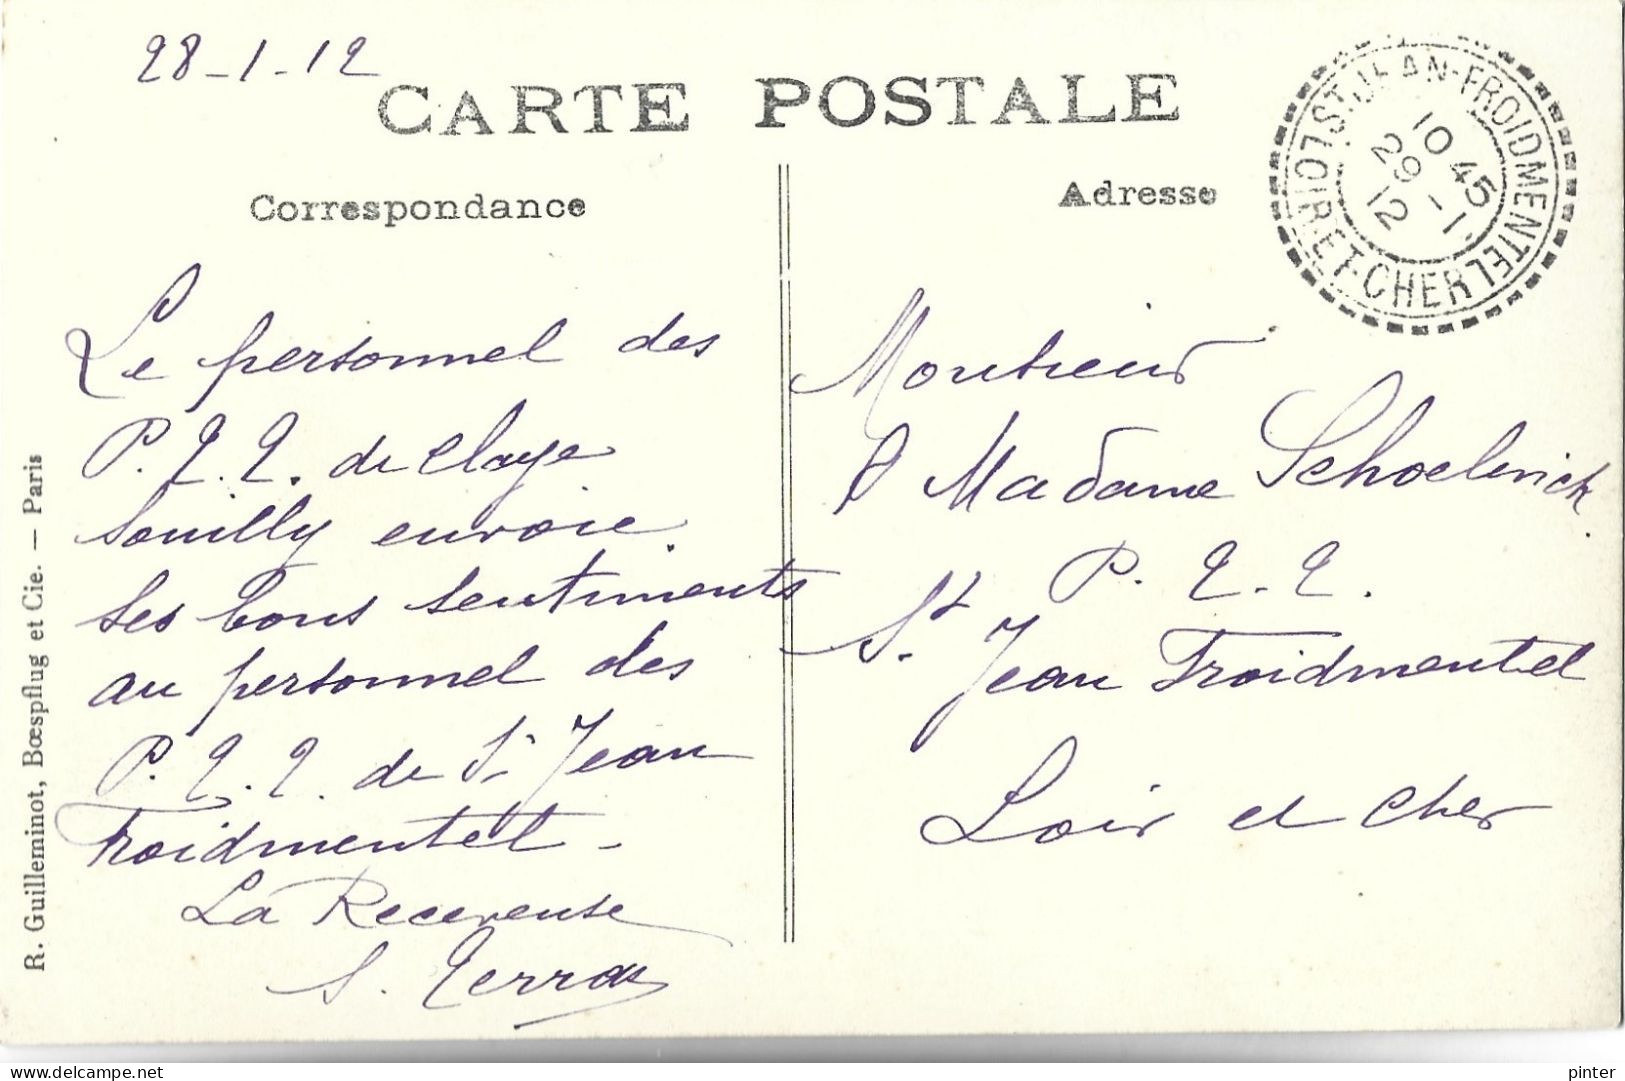 28-1-12
CARTE POSTALE
Correspondance
Adresse
ST JEAN-FROIDMENTEL
LOIR-ET-CHER
10 45
29 -1.
12
Le personnel des
P.T.T. de Claye
Souilly envoie
ses bons sentiments
au personnel des
P.T.T. de St Jean
Froidmentel -
La Receveuse
S.
Monsieur
& Madame
P. T. T.
St. Jean Froidmentel
Loir et Cher
R. Guilleminot, Bœspflug et Cie. — Paris
pinter